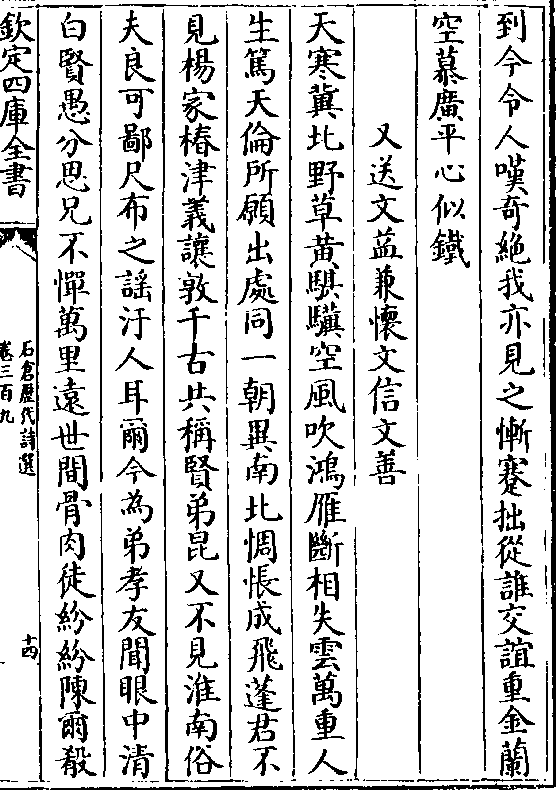 到今令人嘆奇絶我亦見之慚蹇拙從誰交誼重金蘭
空慕廣平心似鐵
又送文藍兼懐文信文善
天寒冀北野草黄騏驥空風吹鴻雁斷相失雲萬重人
生篤天倫所願出處同一朝異南北惆悵成飛蓬君不
見楊家椿津義讓敦千古共稱賢弟昆又不見淮南俗
夫良可鄙尺布之謡汙人耳爾今為弟孝友聞眼中清
白賢愚分思兄不憚萬里遠世間骨肉徒紛紛陳爾殽
欽定四庫全書
石倉歴代詩選
卷三百九
十四